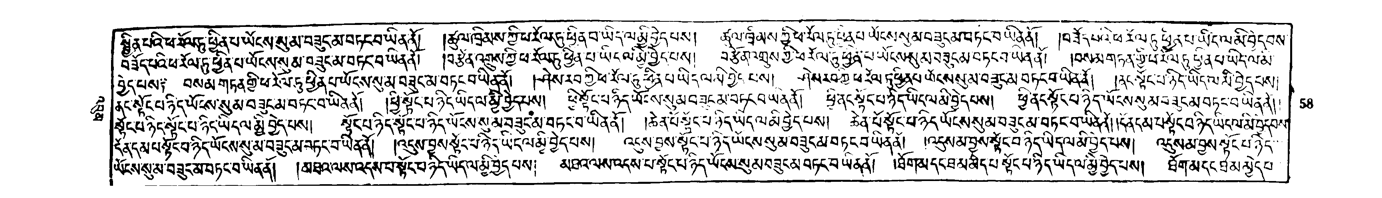 སྦྱིན་པའི་ཕ་རོལ་ཏུ་ཕྱིན་པ་ཡོངས་སུ་མ་བཟུང་མ་བཏང་བ་ཡིན་ནོ། །ཚུལ་ཁྲིམས་ཀྱི་ཕ་རོལ་ཏུ་ཕྱིན་པ་ཡིད་ལ་མི་བྱེད་པས། ཚུལ་ཁྲིམས་ཀྱི་ཕ་རོལ་ཏུ་ཕྱིན་པ་ཡོངས་སུ་མ་བཟུང་མ་བཏང་བ་ཡིན་ནོ། །བཟོད་པའི་ཕ་རོལ་ཏུ་ཕྱིན་པ་ཡིད་ལ་མི་བྱེད་པས
བཟོད་པའི་ཕ་རོལ་ཏུ་ཕྱིན་པ་ཡོངས་སུ་མ་བཟུང་མ་བཏང་བ་ཡིན་ནོ། །བརྩོན་འགྲུས་ཀྱི་ཕ་རོལ་ཏུ་ཕྱིན་པ་ཡིད་ལ་མི་བྱེད་པས། བརྩོན་འགྲུས་ཀྱི་ཕ་རོལ་ཏུ་ཕྱིན་པ་ཡོངས་སུ་མ་བཟུང་མ་བཏང་བ་ཡིན་ནོ། །བསམ་གཏན་གྱི་ཕ་རོལ་ཏུ་ཕྱིན་པ་ཡིད་ལ་མི་
བྱེད་པས། བསམ་གཏན་གྱི་ཕ་རོལ་ཏུ་ཕྱིན་པ་ཡོངས་སུ་མ་བཟུང་མ་བཏང་བ་ཡིན་ནོ། །ཤེས་རབ་ཀྱི་ཕ་རོལ་ཏུ་ཕྱིན་པ་ཡིད་ལ་མི་བྱེད་པས། ཤེས་རབ་ཀྱི་ཕ་རོལ་ཏུ་ཕྱིན་པ་ཡོངས་སུ་མ་བཟུང་མ་བཏང་བ་ཡིན་ནོ། །ནང་སྟོང་པ་ཉིད་ཡིད་ལ་མི་བྱེད་པས།
ནང་སྟོང་པ་ཉིད་ཡོངས་སུ་མ་བཟུང་མ་བཏང་བ་ཡིན་ནོ། །ཕྱི་སྟོང་པ་ཉིད་ཡིད་ལ་མི་བྱེད་པས། ཕྱི་སྟོང་པ་ཉིད་ཡོངས་སུ་མ་བཟུང་མ་བཏང་བ་ཡིན་ནོ། །ཕྱི་ནང་སྟོང་པ་ཉིད་ཡིད་ལ་མི་བྱེད་པས། ཕྱི་ནང་སྟོང་པ་ཉིད་ཡོངས་སུ་མ་བཟུང་མ་བཏང་བ་ཡིན་ནོ། ། 58
སྟོང་པ་ཉིད་སྟོང་པ་ཉིད་ཡིད་ལ་མི་བྱེད་པས། སྟོང་པ་ཉིད་སྟོང་པ་ཉིད་ཡོངས་སུ་མ་བཟུང་མ་བཏང་བ་ཡིན་ནོ། །ཆེན་པོ་སྟོང་པ་ཉིད་ཡིད་ལ་མི་བྱེད་པས། ཆེན་པོ་སྟོང་པ་ཉིད་ཡོངས་སུ་མ་བཟུང་མ་བཏང་བ་ཡིན་ནོ། །དོན་དམ་པ་སྟོང་པ་ཉིད་ཡིད་ལ་མི་བྱེད་པས
དོན་དམ་པ་སྟོང་པ་ཉིད་ཡོངས་སུ་མ་བཟུང་མ་བཏང་བ་ཡིན་ནོ། །འདུས་བྱས་སྟོང་པ་ཉིད་ཡིད་ལ་མི་བྱེད་པས། འདུས་བྱས་སྟོང་པ་ཉིད་ཡོངས་སུ་མ་བཟུང་མ་བཏང་བ་ཡིན་ནོ། །འདུས་མ་བྱས་སྟོང་པ་ཉིད་ཡིད་ལ་མི་བྱེད་པས། འདུས་མ་བྱས་སྟོང་པ་ཉིད་
ཡོངས་སུ་མ་བཟུང་མ་བཏང་བ་ཡིན་ནོ། །མཐའ་ལས་འདས་པ་སྟོང་པ་ཉིད་ཡིད་ལ་མི་བྱེད་པས། མཐའ་ལས་འདས་པ་སྟོང་པ་ཉིད་ཡོངས་སུ་མ་བཟུང་མ་བཏང་བ་ཡིན་ནོ། །ཐོག་མ་དང་ཐ་མ་མེད་པ་སྟོང་པ་ཉིད་ཡིད་ལ་མི་བྱེད་པས། ཐོག་མ་དང་ཐ་མ་མེད་པ